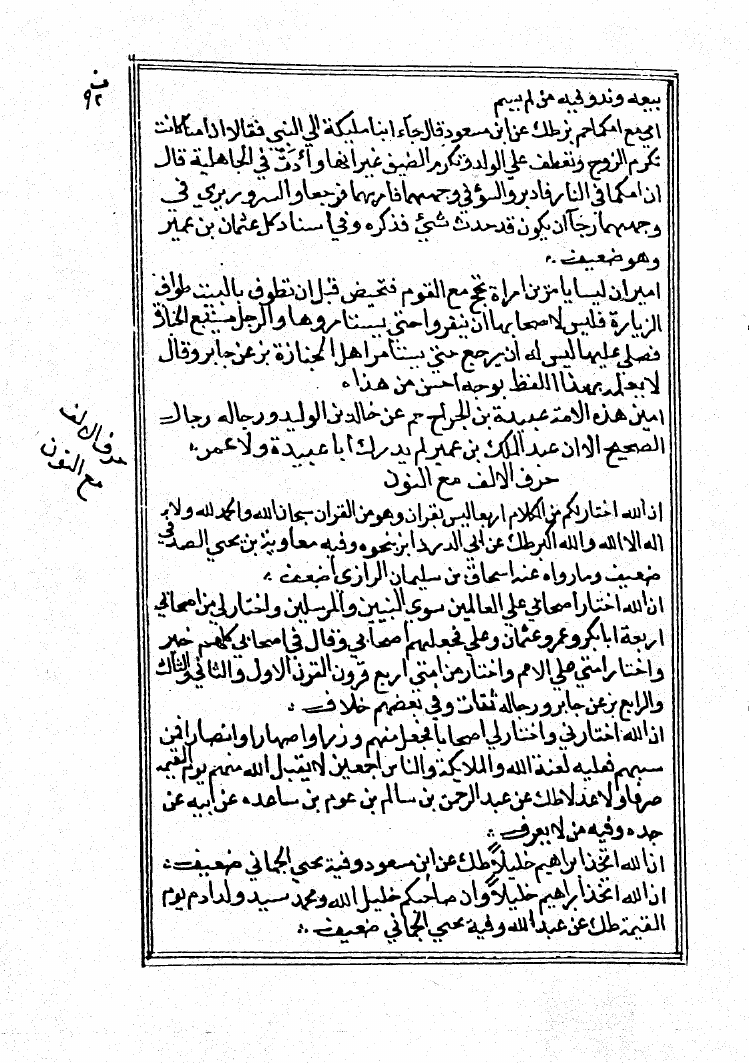 ق
٩٢
بيعه وندو فيه من لم يسم
امي مع امكما حم بز طك عن ابن مسعود قال جاء ابنا مليكة الي النبي فقالا ان امنا كانت
تكرم الزوج وتعطف علي الولد وتكرم الضيف غير انها وأدت في الجاهلية قال
ان امكما في النار فادبروا السؤ في وجههما فاربهما فرجعا والسرور يري في
وجههما رجاً ان يكون قد حدث شيئ فذكره وفي اسنادكل عثمان بن عمير
وهو ضعيف
اميران ليسا بامرين امراة تحج مع القوم فتحيض قبل ان تطوف بالبيت طواف
الزيارة فليس لاصحابها ان ينفروا حتي يستامروها والرجل يتبع الجنازة
فصلي عليها ليس له أن يرجع حتي يستامر اهل الجنازة بز عن جابر وقال
لا يعلم بهذا اللفظ بوجه احسن من هذا
امين هذه الامة عبيدة بن الجراح حم عن خالد بن الوليد ورجاله رجال
الصحيح الا ان عبد الملك بن عمير لم يدرك ابا عبيدة ولا عمر
حرف الالف مع النون
حرف الالف
مع النون
ان الله اختار لكم من الكلام اربعا ليس بقران وهو من القران سبحان الله والحمد لله ولا
اله الا الله والله اكبر طك عن ابي الدرداء بنحوه وفيه معاوية بن يحيي الصدفي
ضعيف وما رواه عنه اسحاق بن سليمان الرازي اضعف
ان الله اختار اصحابي علي العالمين سوي النبيين والمرسلين واختار لي من اصحابي
اربعة ابا بكر وعمر وعثمان وعلي فجعلهم اصحابي وقال في اصحابي كلهم خير
واختار امتي علي الامم واختار من امتي اربع قرون القرن الاول والثاني والثالث
والرابع بز عن جابر ورجاله ثقات وفي بعضهم خلاف
ان الله اختارني واختار لي اصحابا فجعل منهم وزرا واصهارا وانصارا فمن
سبهم فعليه لعنة الله والملايكة والناس اجمعين لا يقبل الله منهم يوم القيمة
صرفا ولا عدلا طك عن عبد الرحمن بن سالم بن عوم بن ساعده عن ابيه عن
جده وفيه من لا يعرف
ان الله اتخذ ابراهيم خليلاً طك عن ابن مسعود وفية يحيي الحماني ضعيف
ان الله اتخذ ابراهيم خليلاً وان صاحبكم خليل الله ومحمد سيد ولد ادم يوم
القيمة طك عن عبد الله وفية يحيي الحماني ضعيف